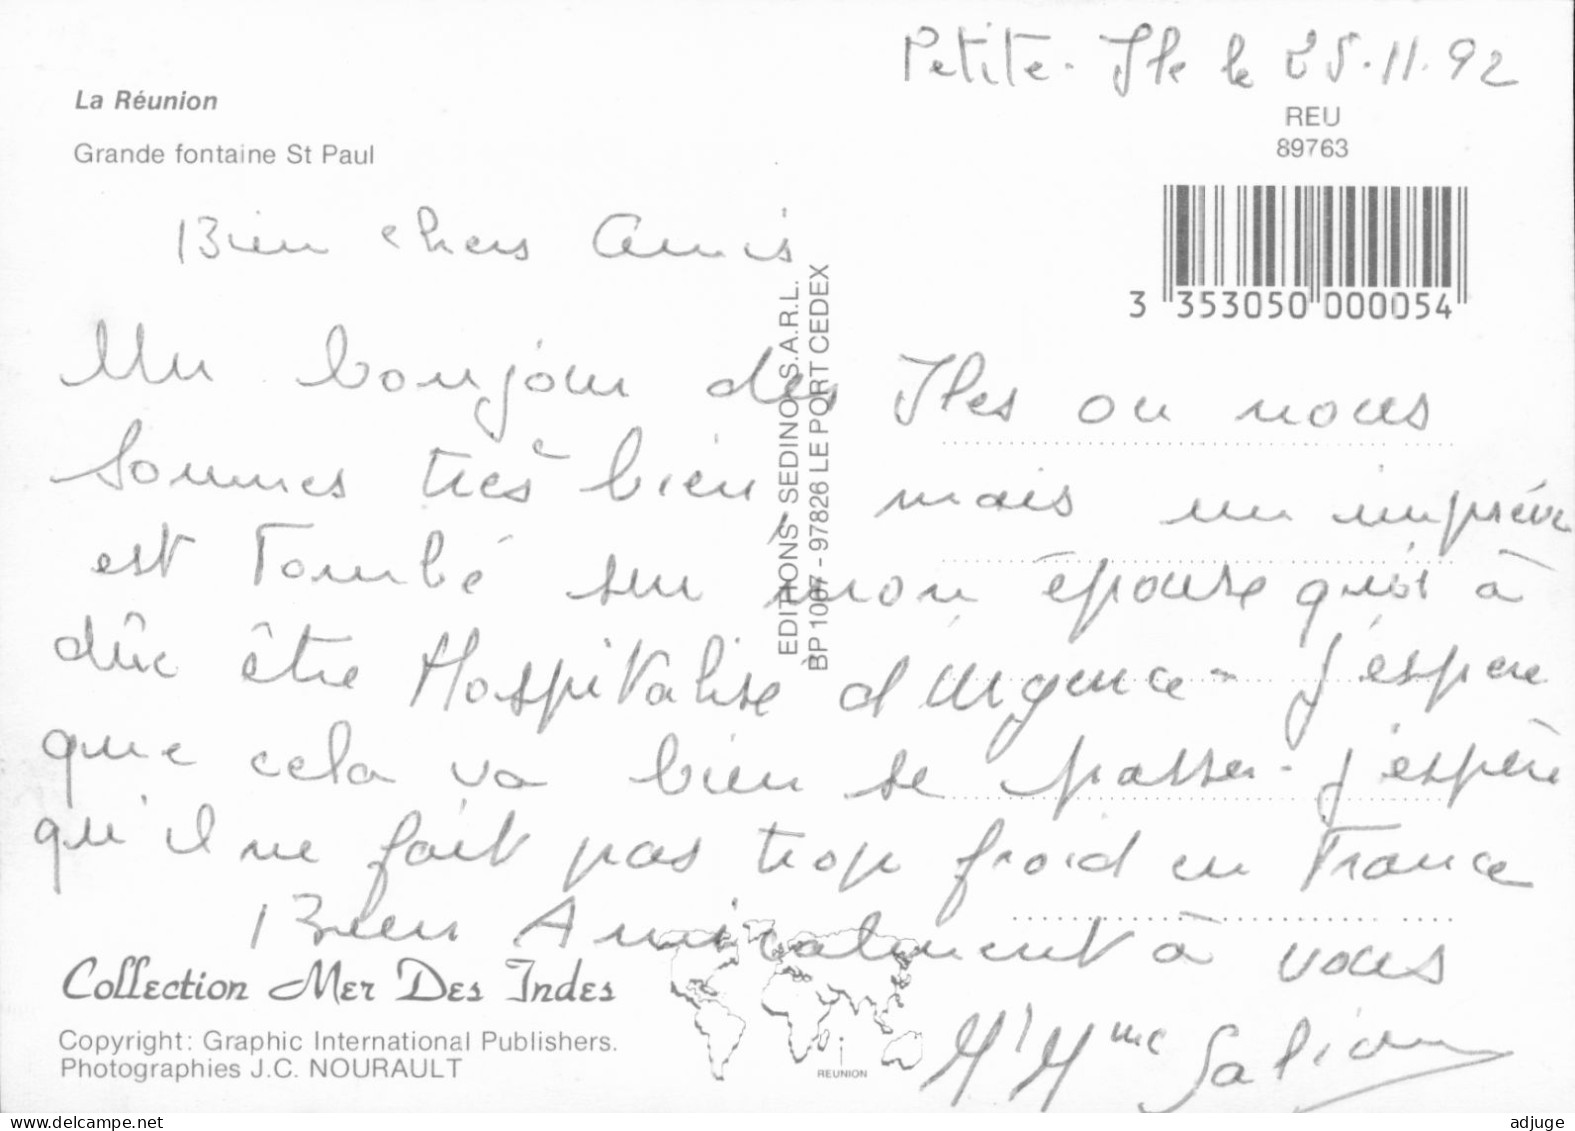 Petite-Ile le 25.11.92
La Réunion
REU
89763
Grande fontaine St Paul
3 353050 000054
Bien chers Amis
Un bonjour des Iles ou nous
sommes très bien, mais un imprévu
est Tombé sur mon épouse qui à
dûe être Hospitalise d'Urgence - J'espere
que cela va bien se passer - J'espère
qu'il ne fait pas trop froid en France
Bien Amicalement à vous
Mr Mme
EDITIONS SEDINO S.A.R.L.
BP 1007 - 97826 LE PORT CEDEX
Collection Mer Des Indes
Copyright: Graphic International Publishers.
Photographies J.C. NOURAULT
REUNION
www.delcampe.net
adjuge